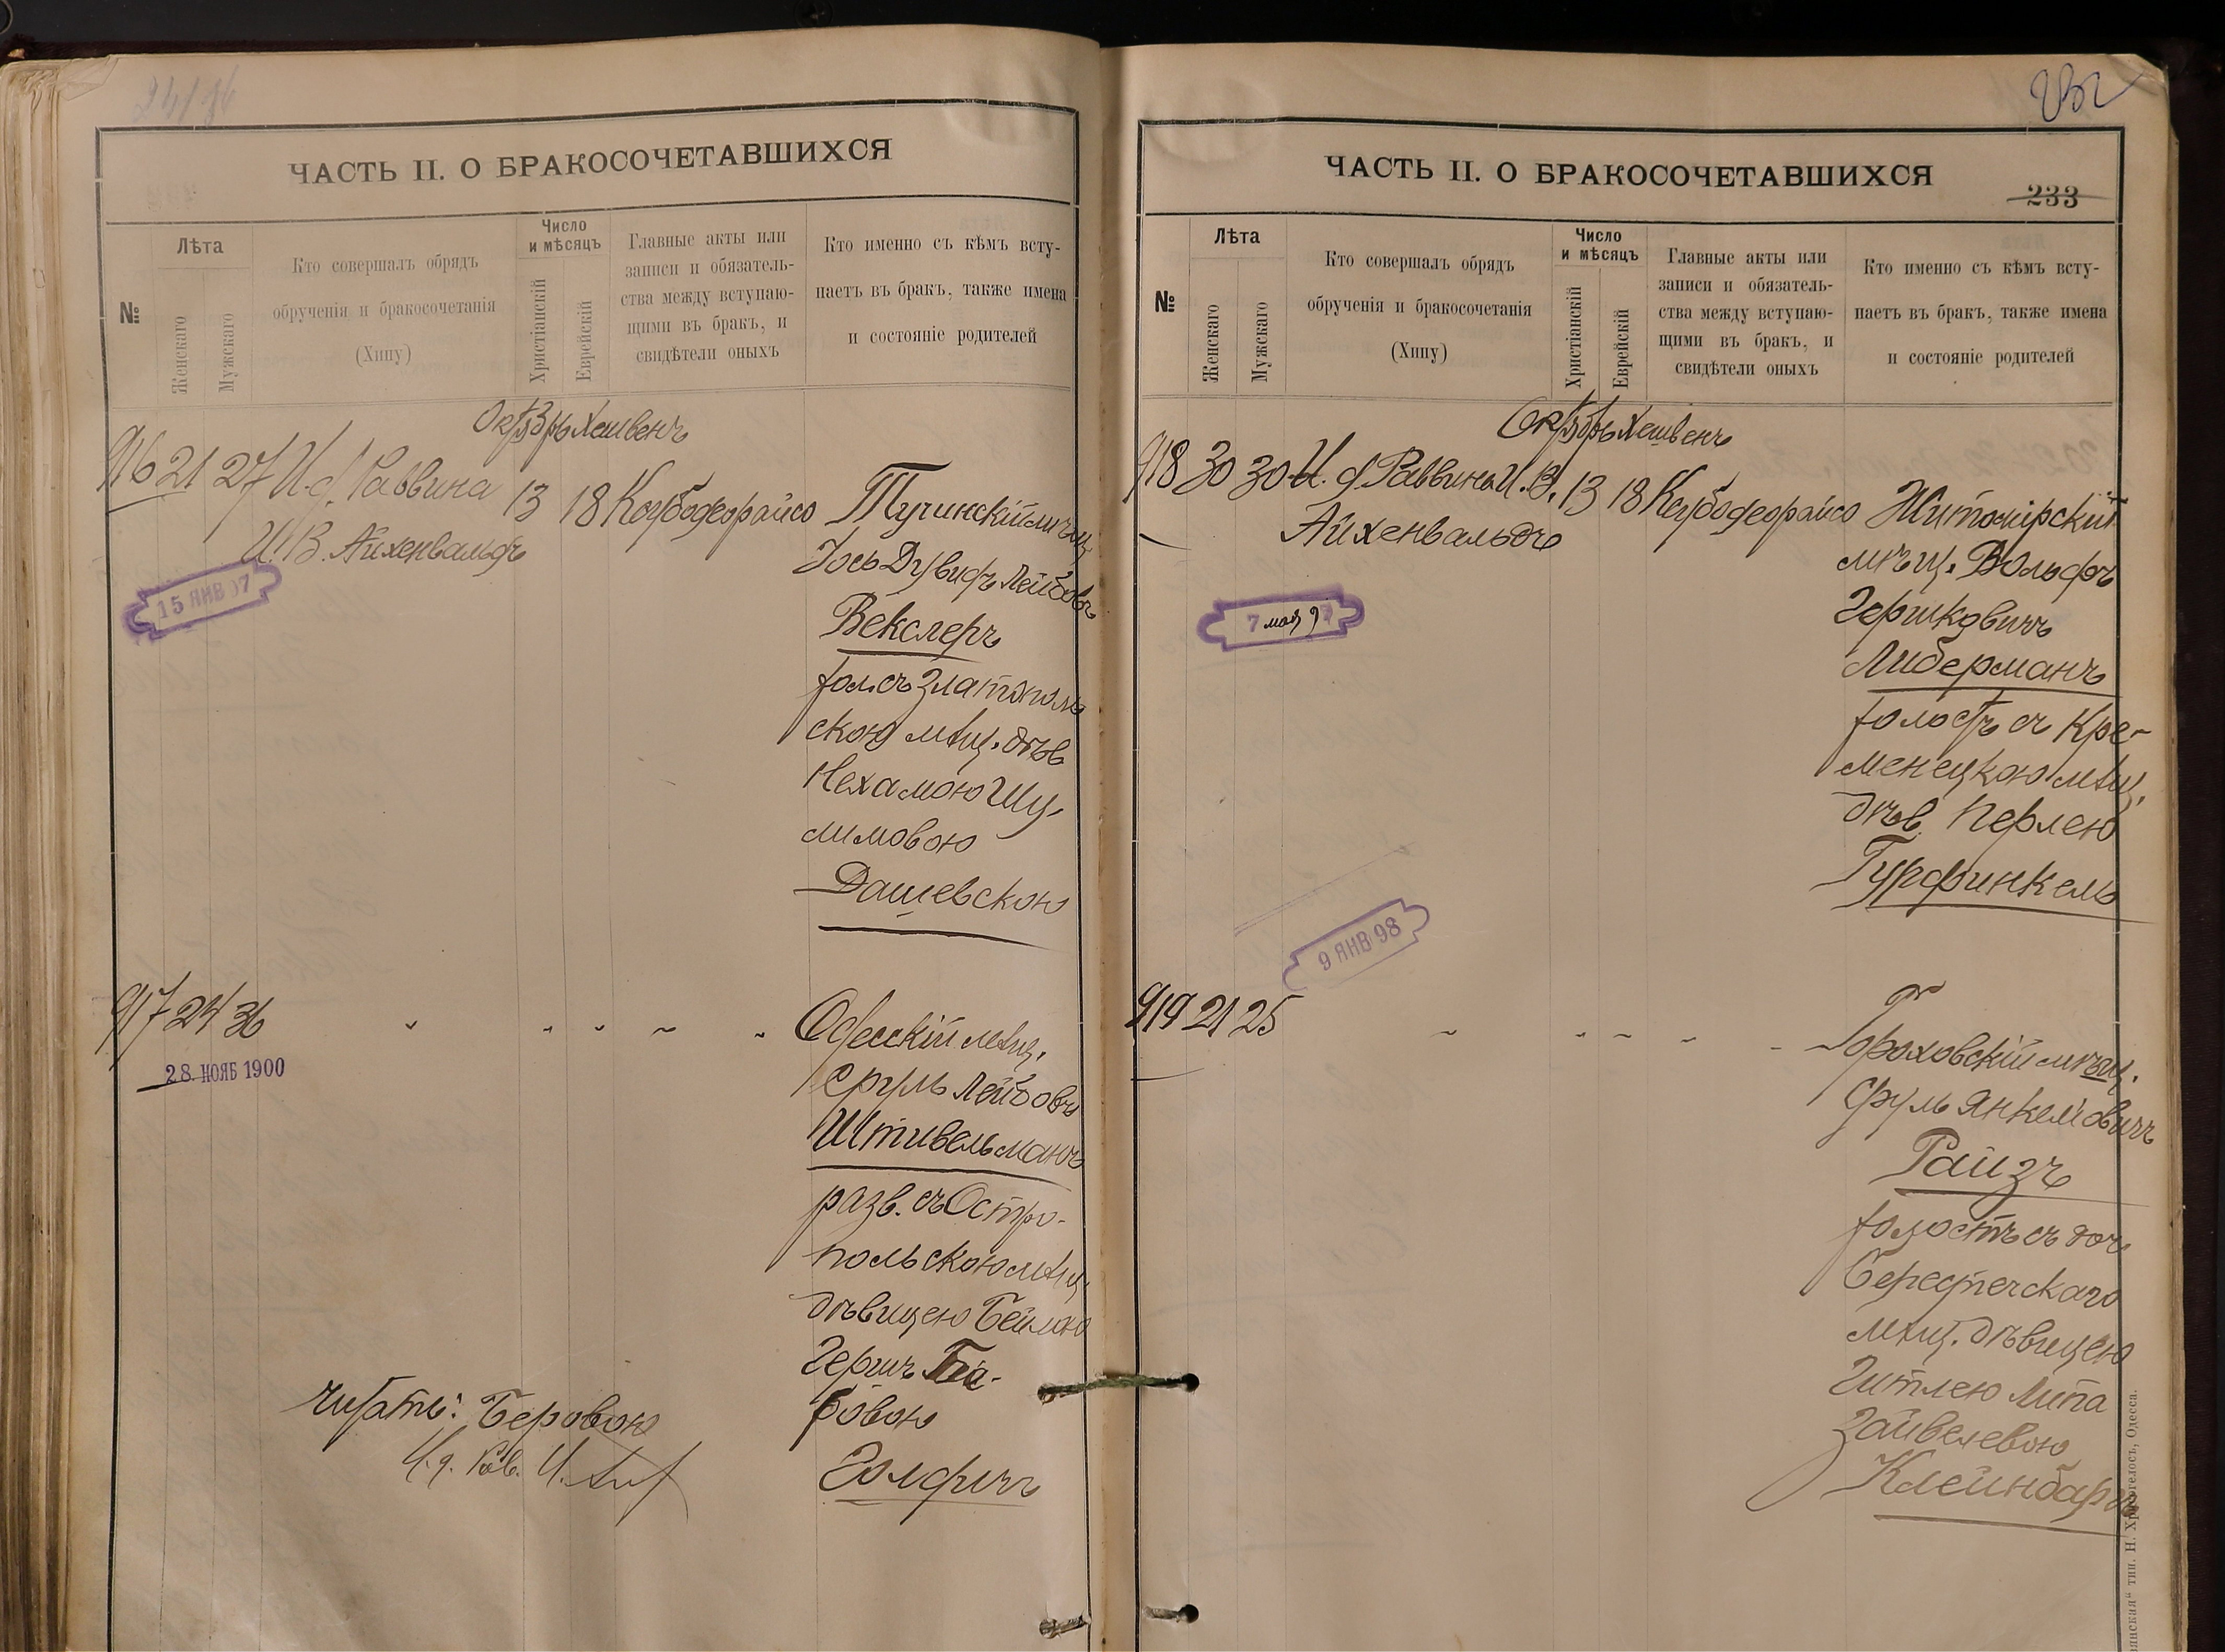 232
ЧАСТЬ II. О БРАКОСОЧЕТАВШИХСЯ
№
Лѣта
Женскаго
Мужскаго
Кто совершалъ обрядъ
обрученія и бракосочетанія
(Хипу)
Число
и мѣсяцъ
Христіанскій
Еврейскій
Главные акты или
записи и обязатель-
ства между вступаю-
щими въ бракъ, и
свидѣтели оныхъ
Кто именно съ кѣмъ всту-
паетъ въ бракъ, также имена
и состояніе родителей
Октябрь Хешвенъ
916 21 27 И. д. Раввина 13 18 Касубодеорайсо Тучинскій мѣщ.
И. В. Айхенвальдъ
Іось Дувидъ Лейбовъ
15 ЯНВ 97
Векслеръ
хол. съ Златополь
скою мѣщ. дѣв
Нехамою Шу-
лимовою
Дашевскою
917 24 36 Одесскій мѣщ.
28 НОЯБ 1900
Сруль Лейбовъ
Штивельманъ
разв. съ Остро-
польскою мѣщ.
дѣвицею Бейлою
Гершъ
ровою
читать: Беровою
И. д. Рав. И.
Голфичъ
ЧАСТЬ II. О БРАКОСОЧЕТАВШИХСЯ
233
№
Лѣта
Женскаго
Мужскаго
Кто совершалъ обрядъ
обрученія и бракосочетанія
(Хипу)
Число
и мѣсяцъ
Христіанскій
Еврейскій
Главные акты или
записи и обязатель-
ства между вступаю-
щими въ бракъ, и
свидѣтели оныхъ
Кто именно съ кѣмъ всту-
паетъ въ бракъ, также имена
и состояніе родителей
Октябрь Хешвенъ
918 30 30 И. д. Раввина И. В. 13 18 Касубодеорайсо Житомірскій
Айхенвальдъ
мѣщ. Вольфъ
Гершковичъ
7 мая 97
Либерманъ
холостъ съ Кре-
менецкою мѣщ.
дѣв. Перлею
Гурфинкель
9 ЯНВ 98
919 21 25 Гороховскій мѣщ.
Сруль Янкелевичъ
Райзъ
холостъ съ доч
Берестечскаго
мѣщ. дѣвицею
Гитлею Липа
Зайвелевою
Клейнбаръ
тип. Н. Хрисогелосъ, Одесса.